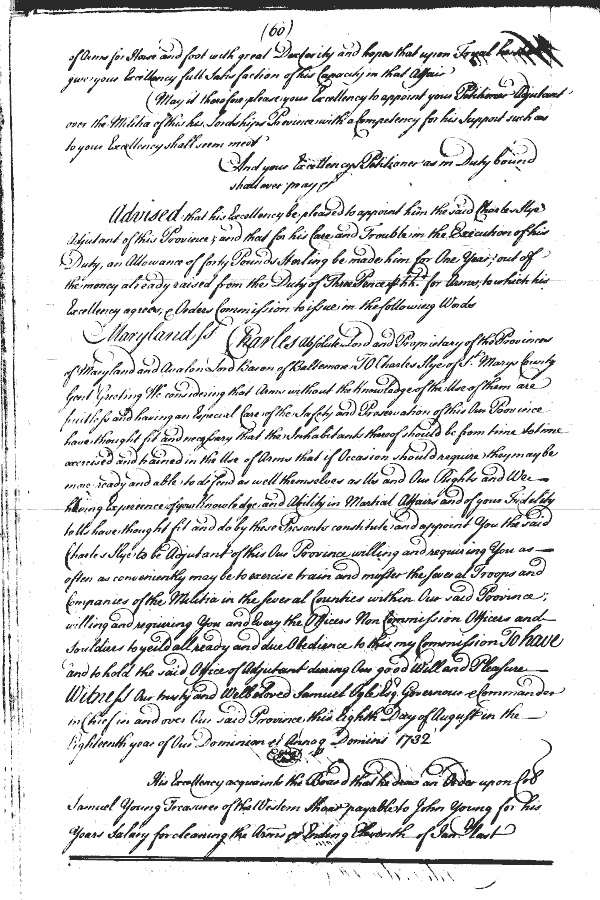 (60)
of Arms for Horse and foot with great Dexterity and hopes that upon Tryal he
give your Excellency full Satisfaction of his Capacity in that Affair
May it therefore please your Excellency to appoint your Petitioner Adjutant
over the Militia of this his Lordships Province with a Competency for his Support such as
to your Excellency shall seem meet
And your Excellencys Petitioner as in Duty bound
shall ever pray &c
Advised that his Excellency be pleased to appoint him the said Charles Slye
Adjutant of this Province; and that for his Care and Trouble in the Execution of his
Duty, an Allowance of forty Pounds Sterling be made him for One Year; out of
the money already raised from the Duty of Three Pence hh.d for Arms, to which his
Excellency agrees, & Orders Commission to issue in the following Words
Maryland ss Charles Absolute Lord and Proprietary of the Provinces
of Maryland and Avalon Lord Baron of Baltemore TO Charles Slye of S.t Marys County
Gent Greeting We considering that Arms without the knowledge of the Use of them are
fruitless and having an Especial Care of the Safety and Preservation of this Our Province
have thought fit and necessary that the Inhabitants thereof should be from time to time
exercised and trained in the Use of Arms that if Occasion should require they may be
more ready and able to defend as well themselves as Us and Our Rights and We
having Experience of your Knowledge and Ability in Martial Affairs and of your Fidelity
to Us have thought fit and do by these Presents constitute and appoint You the said
Charles Slye to be Adjutant of this Our Province willing and requiring You as
often as conveniently may be to exercise train and muster the several Troops and
Companies of the Militia in the several Counties within Our said Province;
willing and requiring You and every the Officers Non Commission Officers and
Souldiers to yeild all ready and due Obedience to this my Commission To have
and to hold the said Office of Adjutant during Our good Will and Pleasure
Witness Our trusty and Welbeloved Samuel Ogle Esq. Governour & Commander
in Chief in and over Our said Province this Eighth Day of August in the
Eighteenth year of Our Dominion &c Annoq Domini 1732
His Excellency acquaints the Board that he drew an Order upon Col.o
Samuel Young Treasurer of the Western Shoar payable to John Young for his
Years Salary for cleaning the Arms Ending Eleventh of Jan.ry last